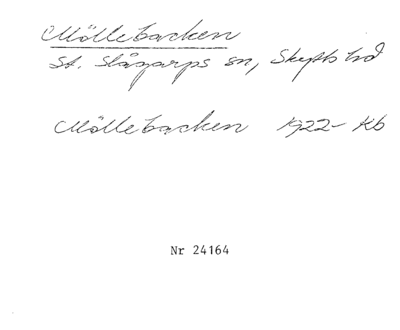 Möllebacken
St. Slågarps sn, Skytts hd
Möllebacken 1922- Kb
Nr 24164